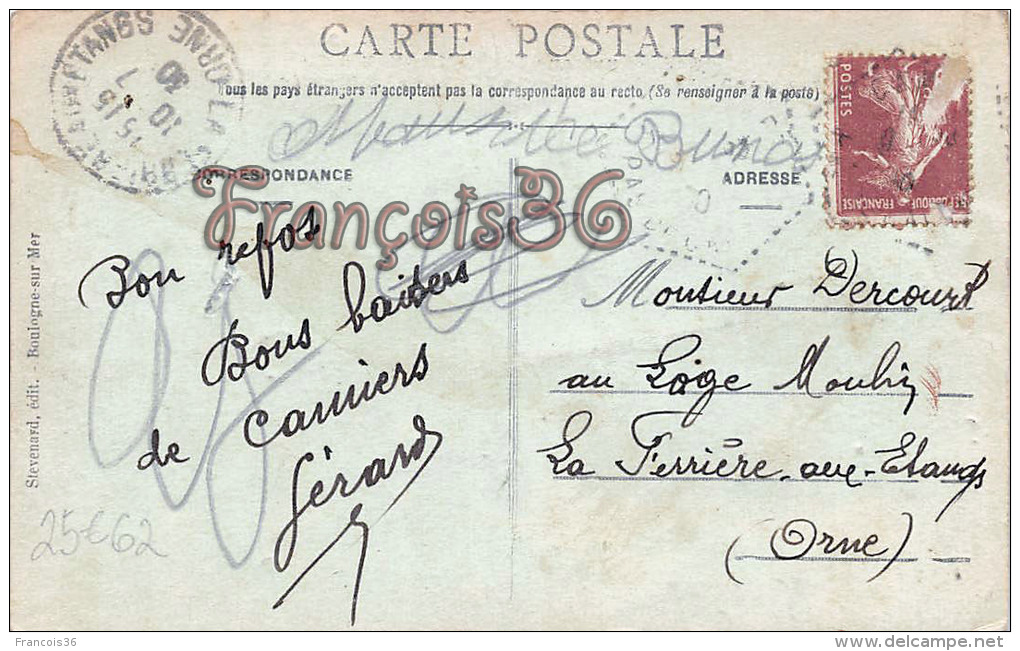 CARTE POSTALE
Tous les pays étrangers n'acceptent pas la correspondance au recto. (Se renseigner à la poste)
CORRESPONDANCE
ADRESSE
François36
POSTES
REPUBLIQUE FRANÇAISE
Bon repos
Bons baisers
de Camiers
Gérard
Monsieur Dercourt
au Loge Moulin
La Ferrière-aux-Etangs
(Orne)
Stevenard, édit. - Boulogne-sur Mer
25€62
ORNE
15 45
10 7
30
Francois36
www.delcampe.net